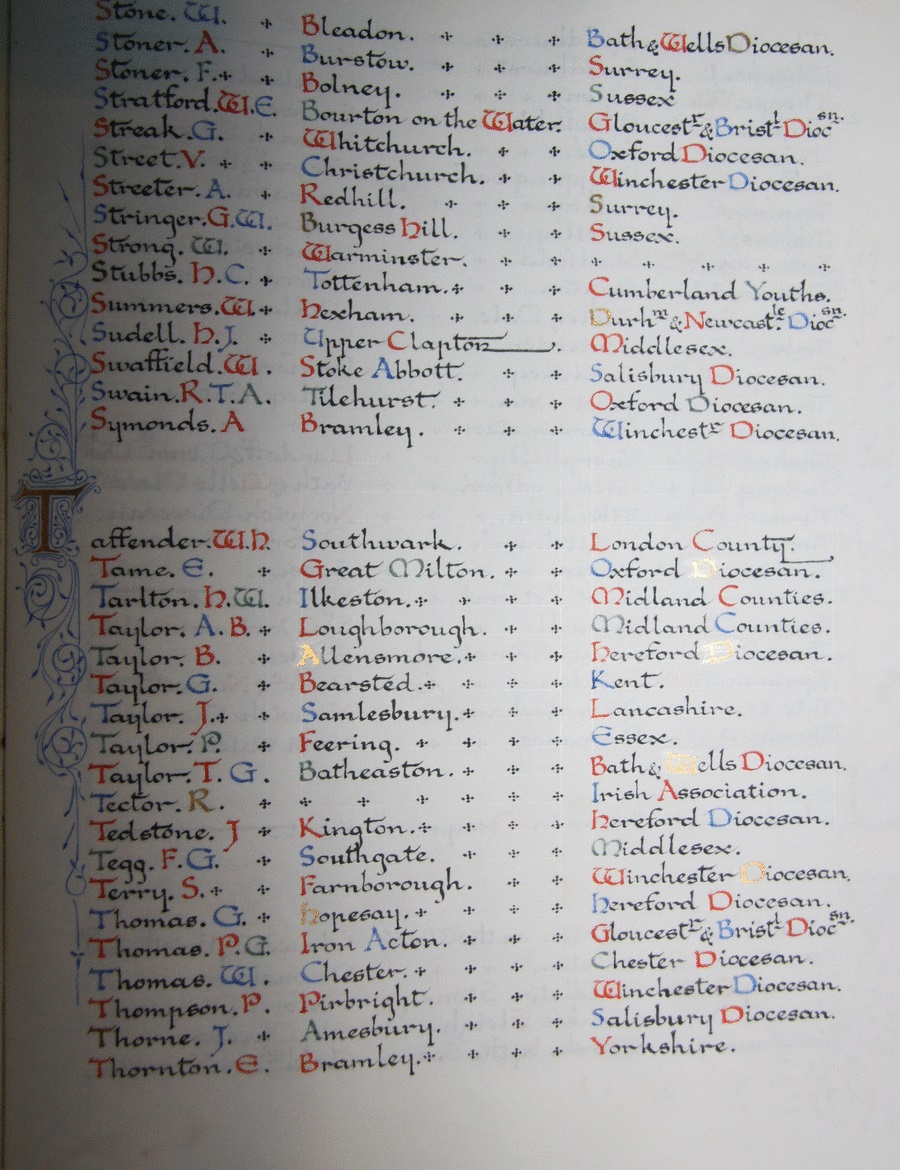 Stone. W. Bleadon. Bath & Wells Diocesan.
Stoner. A. Burstow. Surrey.
Stoner. F. Bolney. Sussex
Stratford. W. E. Bourton on the Water. Gloucestr. & Bristl. Diocsn.
Streak. G. Whitchurch. Oxford Diocesan.
Street. V. Christchurch. Winchester Diocesan.
Streeter. A. Redhill. Surrey.
Stringer. G. W. Burgess Hill. Sussex.
Strong. W. Warminster.
Stubbs. H. C. Tottenham. Cumberland Youths.
Summers. W. Hexham. Durhm. & Newcastle. Diocsn.
Sudell. H. J. Upper Clapton. Middlesex.
Swaffield. W. Stoke Abbott. Salisbury Diocesan.
Swain. R. T. A. Tilehurst. Oxford Diocesan.
Symonds. A Bramley. Winchestr Diocesan.
Taffender. W. H. Southwark. London County.
Tame. E. Great Milton. Oxford Diocesan.
Tarlton. H. W. Ilkeston. Midland Counties.
Taylor. A. B. Loughborough. Midland Counties.
Taylor. B. Allensmore. Hereford Diocesan.
Taylor. G. Bearsted. Kent.
Taylor. J. Samlesbury. Lancashire.
Taylor. P. Feering. Essex.
Taylor. T. G. Batheaston. Bath & Wells Diocesan.
Tector. R. Irish Association.
Tedstone. J Kington. Hereford Diocesan.
Tegg. F. G. Southgate. Middlesex.
Terry. S. Farnborough. Winchester Diocesan.
Thomas. G. Hopesay. Hereford Diocesan.
Thomas. P. G. Iron Acton. Gloucestr. & Bristl. Diocsn.
Thomas. W. Chester. Chester Diocesan.
Thompson. P. Pirbright. Winchester Diocesan.
Thorne. J. Amesbury. Salisbury Diocesan.
Thornton. E. Bramley. Yorkshire.